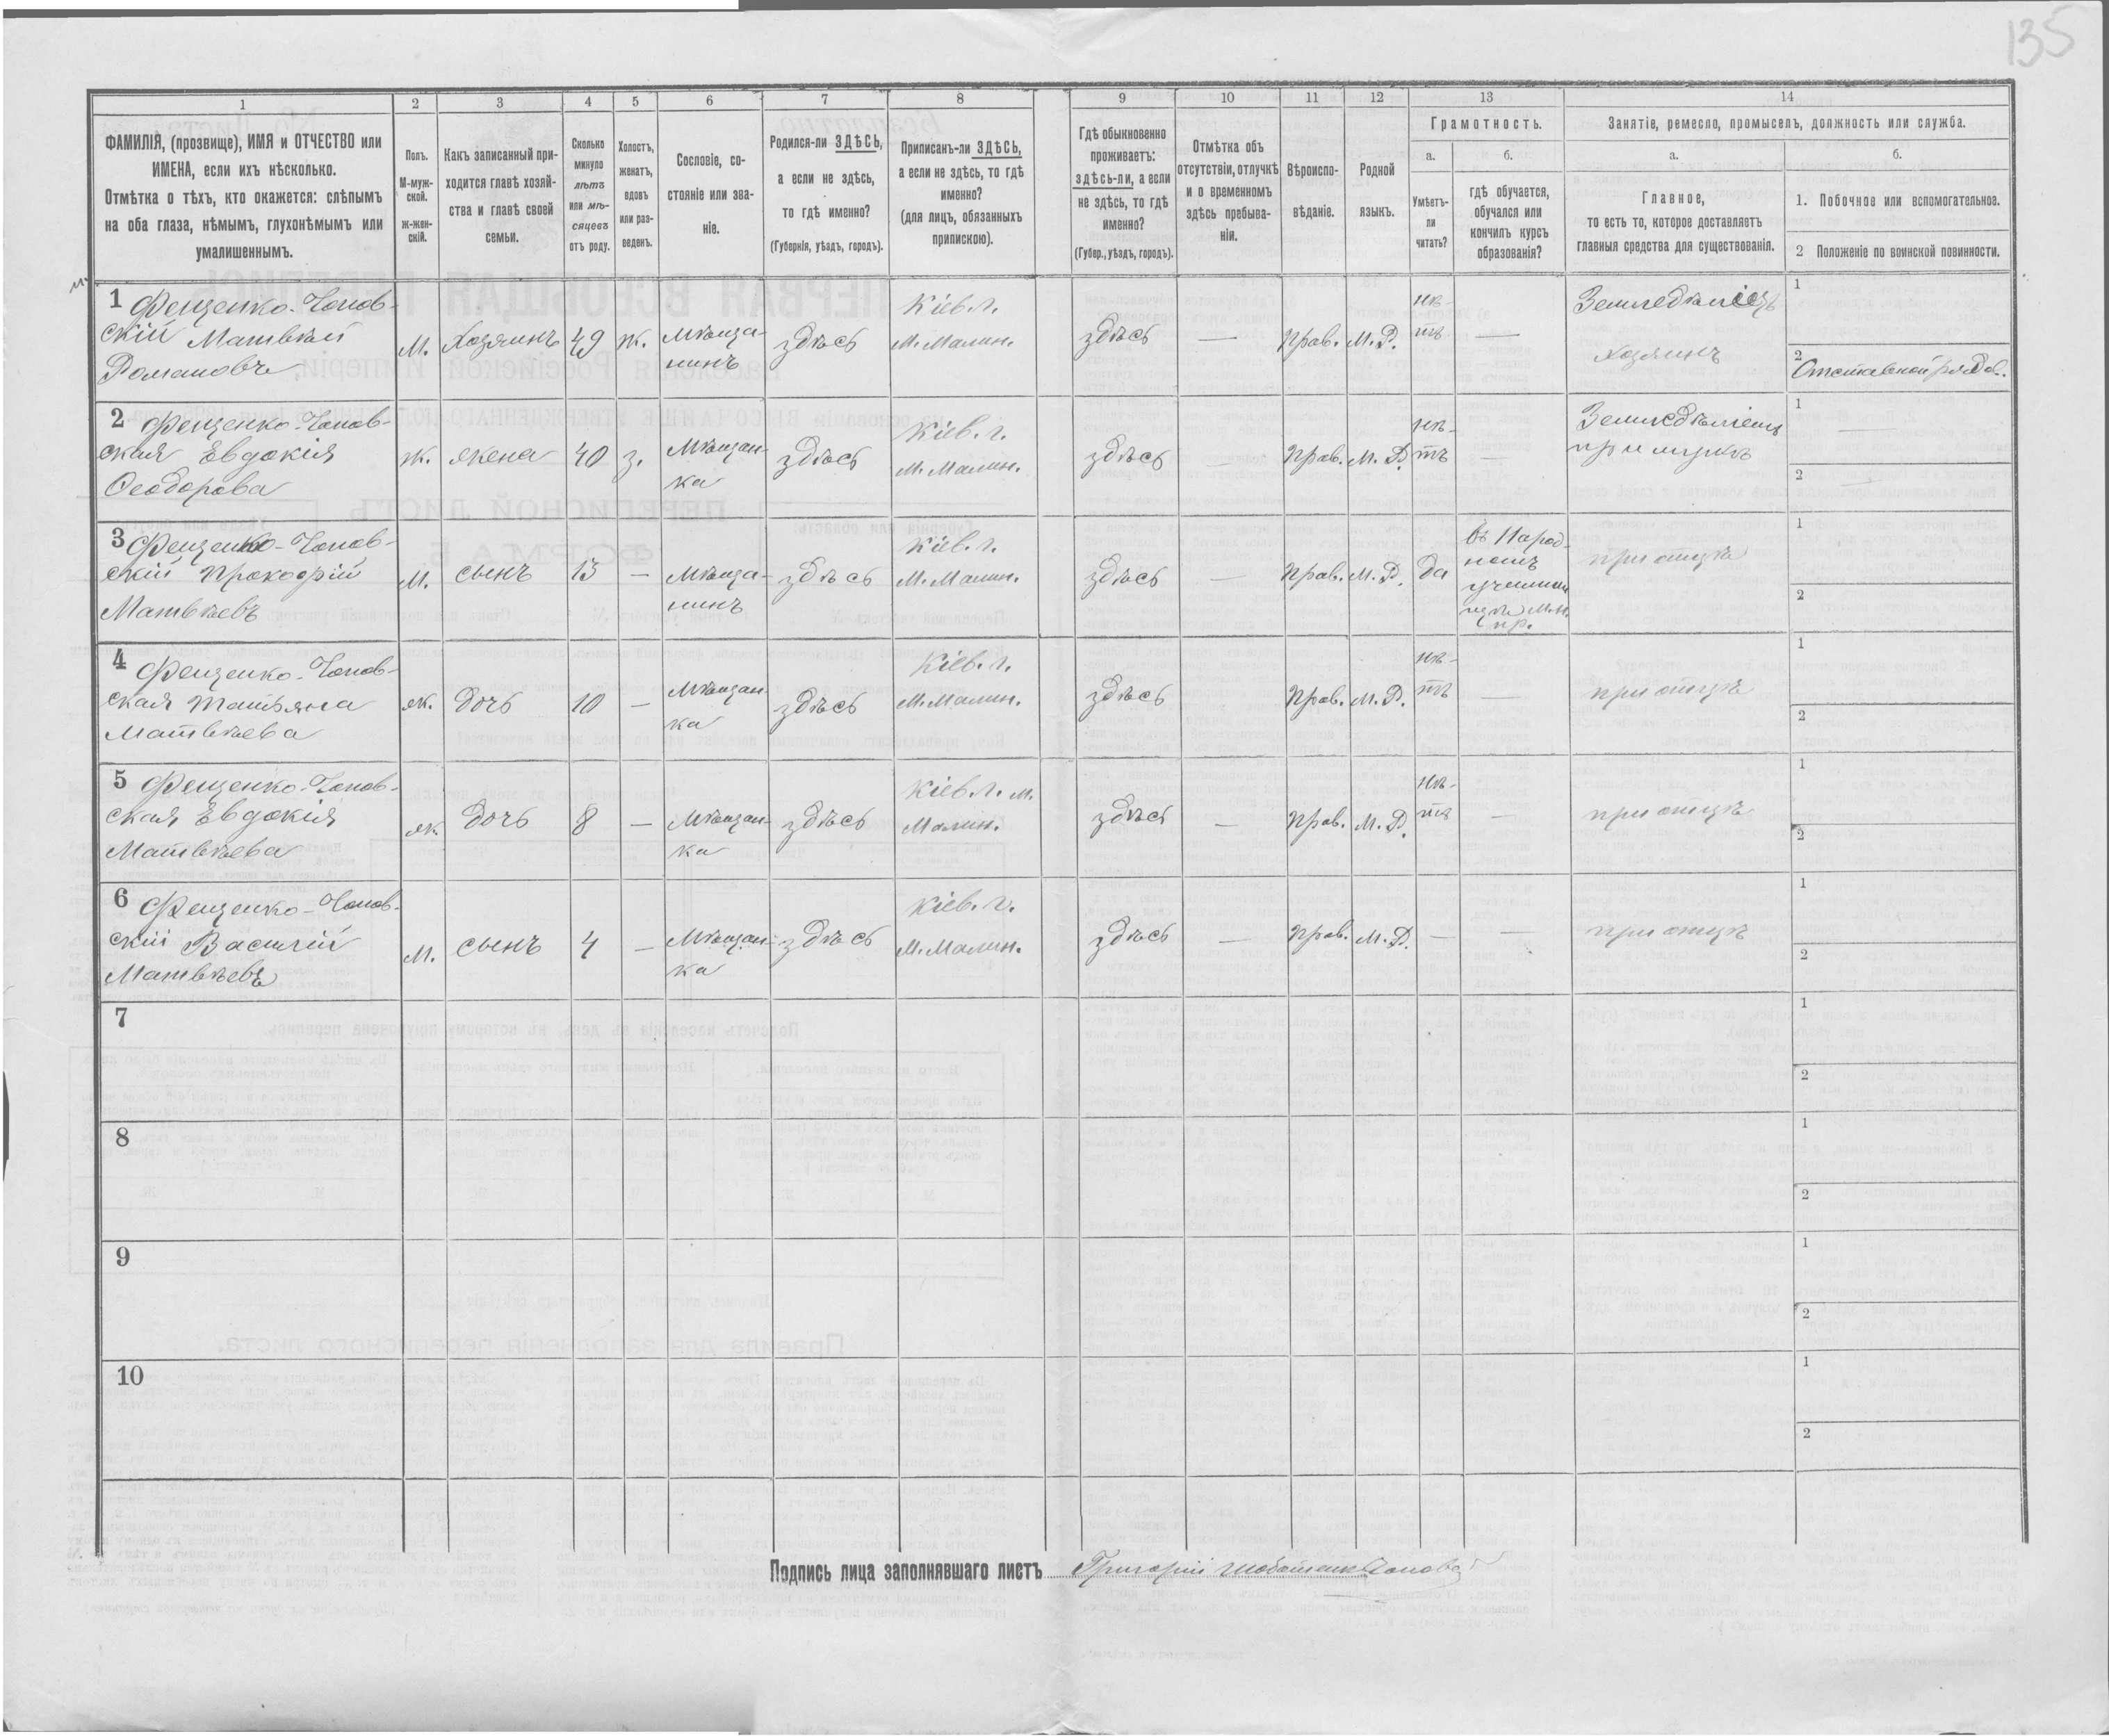 135
1 2 3 4 5 6 7 8 9 10 11 12 13 14
ФАМИЛІЯ, (прозвище), ИМЯ и ОТЧЕСТВО или
ИМЕНА, если ихъ нѣсколько.
Отмѣтка о тѣхъ, кто окажется: слѣпымъ
на оба глаза, нѣмымъ, глухонѣмымъ или
умалишеннымъ.
Полъ.
М-муж-
ской.
ж-жен-
скій.
Какъ записанный при-
ходится главѣ хозяй-
ства и главѣ своей
семьи.
Сколько
минуло
лѣтъ
или мѣ-
сяцевъ
отъ роду.
Холостъ,
женатъ,
вдовъ
или раз-
веденъ.
Сословіе, со-
стояніе или зва-
ніе.
Родился-ли ЗДѢСЬ,
а если не здѣсь,
то гдѣ именно?
(Губернія, уѣздъ, городъ).
Приписанъ-ли ЗДѢСЬ,
а если не здѣсь, то гдѣ
именно?
(для лицъ, обязанныхъ
припискою).
Гдѣ обыкновенно
проживаетъ:
здѣсь-ли, а если
не здѣсь, то гдѣ
именно?
(Губер., уѣздъ, городъ).
Отмѣтка объ
отсутствіи, отлучкѣ
и о временномъ
здѣсь пребыва-
ніи.
Вѣроиспо-
вѣданіе.
Родной
языкъ.
Грамотность.
а.
Умѣетъ-
ли
читать?
б.
гдѣ обучается,
обучался или
кончилъ курсъ
образованія?
Занятіе, ремесло, промыселъ, должность или служба.
а.
Главное,
то есть то, которое доставляетъ
главныя средства для существованія.
б.
1. Побочное или вспомогательное.
2 Положеніе по воинской повинности.
1 Фещенко-Чопов-
скій Матвѣй
Романовъ
М.
Хозяинъ
49
ж.
Мѣща-
нинъ
здѣсь
Кіев. г.
М. Малин.
здѣсь
—
Прав.
М. Р.
нѣ-
тъ
—
Земледѣліецъ
хозяинъ
1
2
Отставной рядов.
2 Фещенко-Чопов-
ская Евдокія
Ѳеодорова
ж.
жена
40
з.
Мѣщан-
ка
здѣсь
Кіев. г.
М. Малин.
здѣсь
—
Прав.
М. Р.
нѣ-
тъ
—
Земледѣліецъ
при мужѣ
1
—
2
—
3 Фещенко-Чопов-
скій Прокофій
Матвѣевъ
М.
сынъ
13
—
Мѣща-
нинъ
здѣсь
Кіев. г.
М. Малин.
здѣсь
—
Прав.
М. Р.
да
въ Народ-
номъ
училищ
при отцѣ
1
2
4 Фещенко-Чопов-
ская Татьяна
Матвѣева
ж.
дочь
10
—
Мѣщан-
ка
здѣсь
Кіев. г.
М. Малин.
здѣсь
Прав.
М. Р.
нѣ-
тъ
—
при отцѣ
1
2
5 Фещенко-Чопов-
ская Евдокія
Матвѣева
ж.
дочь
8
—
Мѣщан-
ка
здѣсь
Кіев. г. м.
Малин.
здѣсь
—
Прав.
М. Р.
нѣ-
тъ
—
при отцѣ
1
2
6 Фещенко-Чопов-
скій Василій
Матвѣевъ
М.
сынъ
4
—
Мѣщан-
ка
здѣсь
Кіев. г.
М. Малин.
здѣсь
—
Прав.
М. Р.
—
—
при отцѣ
1
2
7
1
2
8
1
2
9
1
2
10
1
2
Подпись лица заполнявшаго листъ Григорій